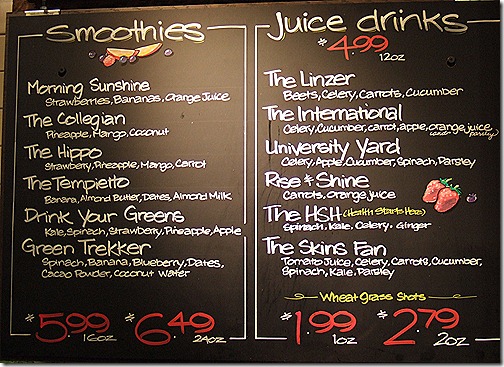 Smoothies
Morning Sunshine
Strawberries, Bananas, Orange Juice
The Collegian
Pineapple, Mango, Coconut
The Hippo
Strawberry, Pineapple, Mango, Carrot
The Tempietto
Banana, Almond Butter, Dates, Almond Milk
Drink Your Greens
Kale, Spinach, Strawberry, Pineapple, Apple
Green Trekker
Spinach, Banana, Blueberry, Dates,
Cacao Powder, Coconut Water
$5.99 16oz $6.49 24oz
Juice drinks
$4.99
12oz
The Linzer
Beets, Celery, Carrots, Cucumber
The International
Celery, Cucumber, carrot, apple, orange juice
and parsley
University Yard
Celery, Apple, Cucumber, Spinach, Parsley
Rise & Shine
Carrots, Orange Juice
The HSH (Health Starts Here)
Spinach, Kale, Celery, Ginger
The Skins Fan
Tomato Juice, Celery, Carrots, Cucumber,
Spinach, Kale, Parsley
Wheat grass Shots
$1.99 1oz $2.79 2oz